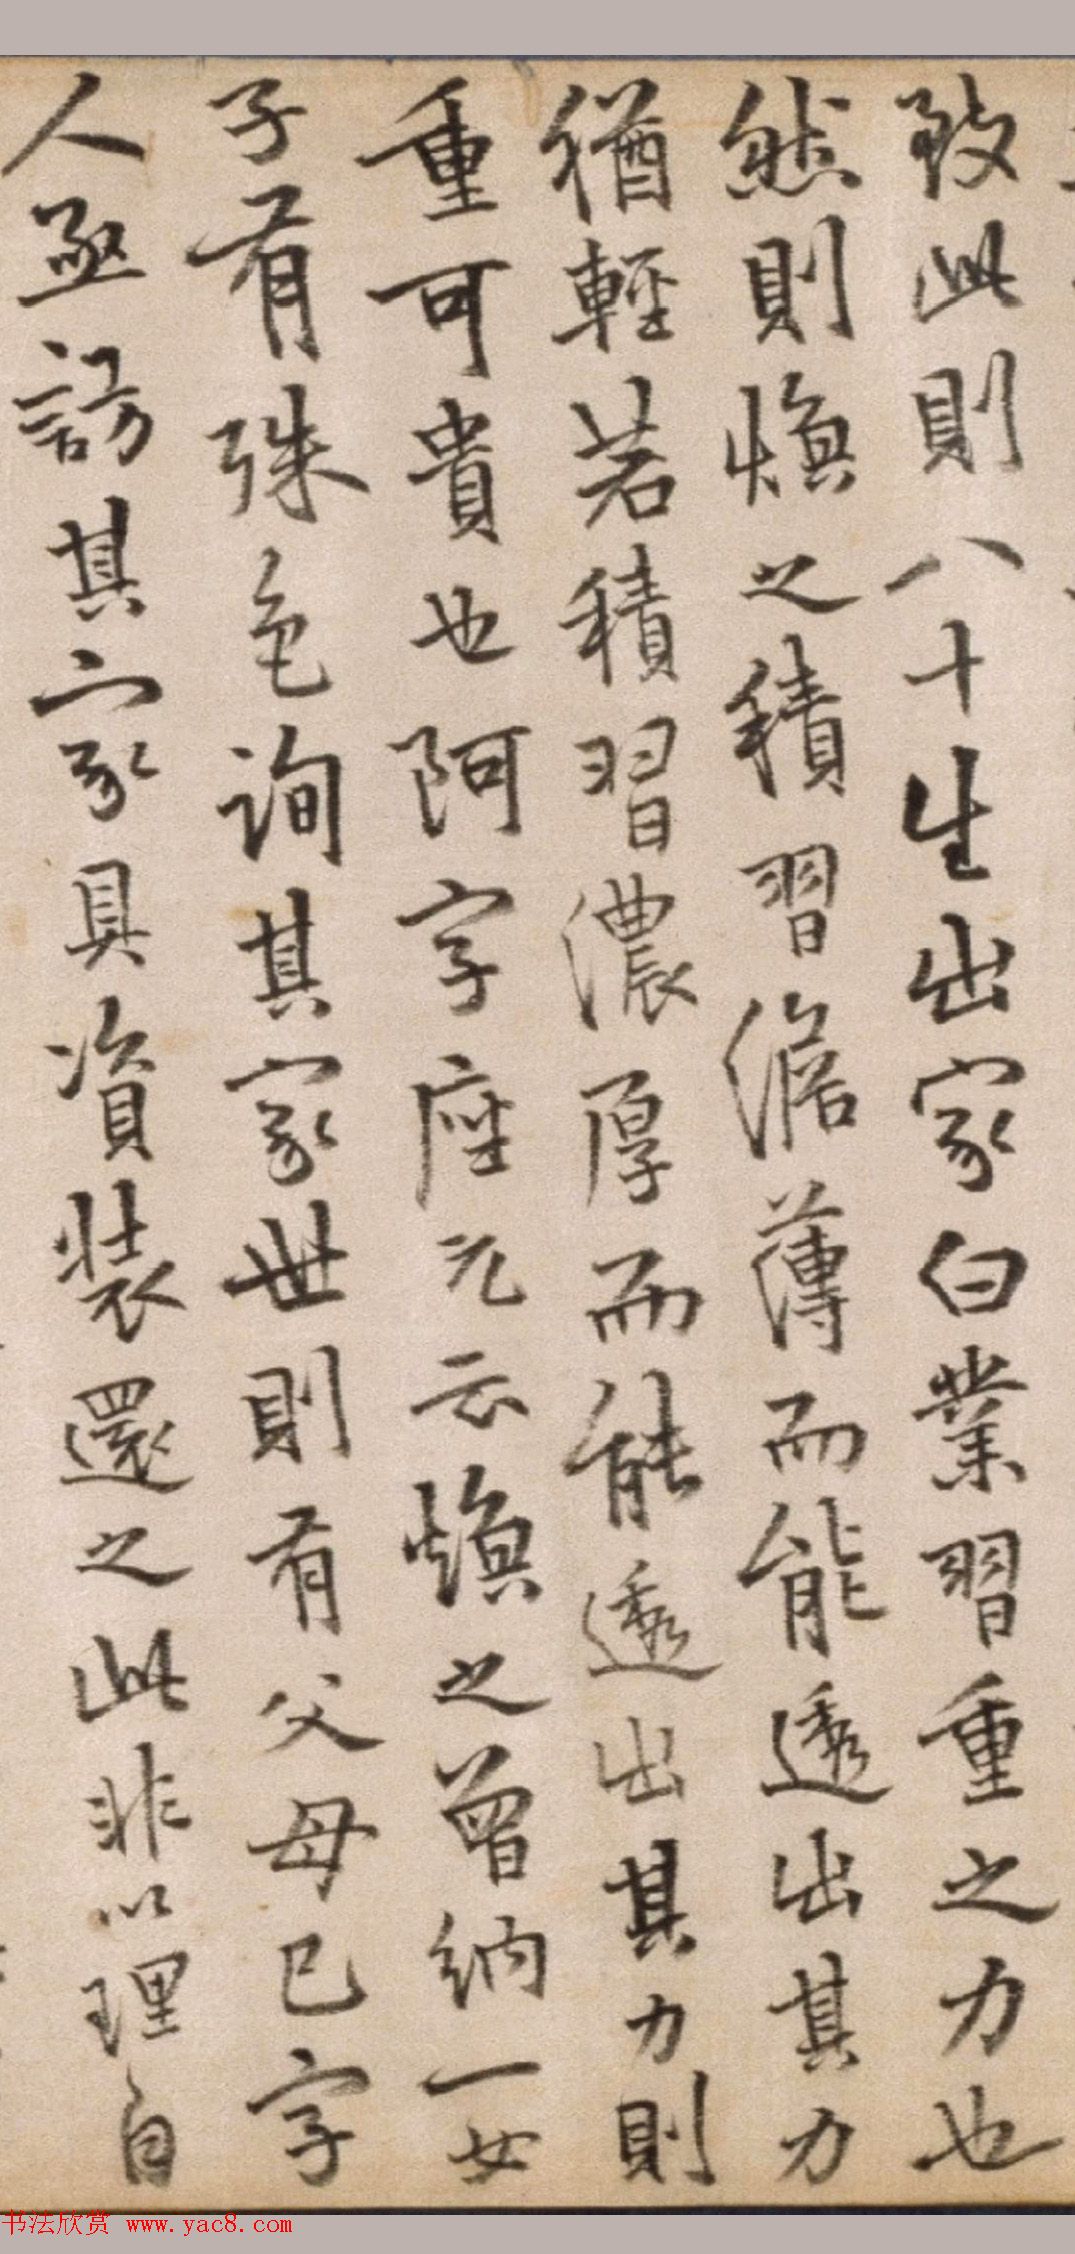 致此則八十生出家白業習重之力也
然則煥之積習澹薄而能透出其力
猶輕若積習濃厚而能透出其力則
重可貴也阿字座元云煥之曾納一女
子有殊色詢其家世則有父母已字
人亟訪其家具資裝還之此非以理自
书法欣赏 www.yac8.com